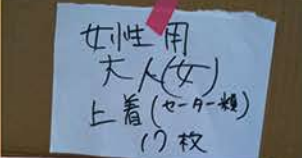 女性用
大人(女)
上着(セーター類)
17枚